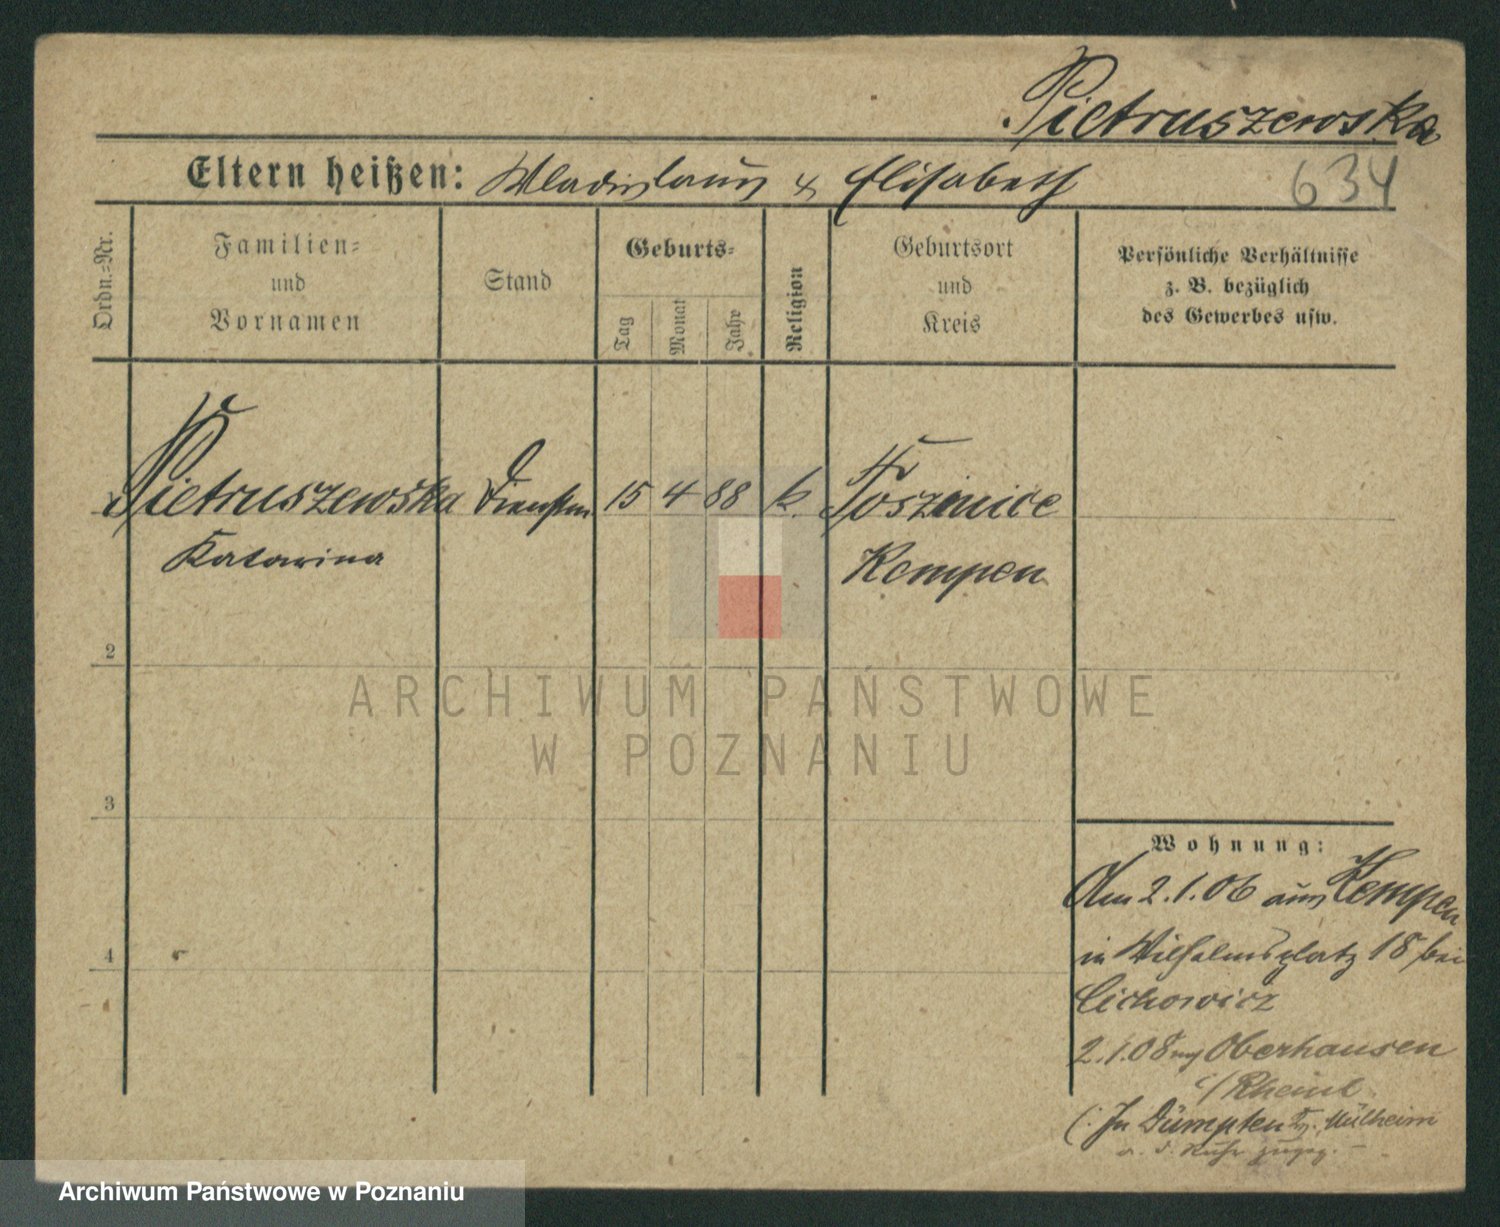 Pietruszewska
Eltern heißen: Wladislaus & Elisabeth 634
Ordn.=Nr.
Familien=
und
Vornamen
Stand
Geburts=
Tag
Monat
Jahr
Religion
Geburtsort
und
Kreis
Persönliche Verhältnisse
z. B. bezüglich
des Gewerbes usw.
Pietruszewska 15 4 88 k.
Katarina Kempen
2
ARCHIWUM PAŃSTWOWE
W POZNANIU
3
Wohnung:
Am 2.1.06 aus Kempen
in Wilhelmsplatz 18 bei
Cichowicz
4
2.1.08 Oberhausen
Rheinl.
(: In Dümpten Mülheim
a. d. Ruhr
Archiwum Państwowe w Poznaniu